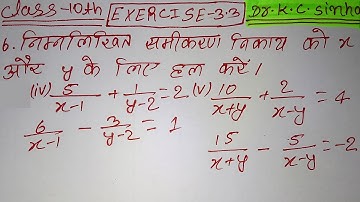 Class-10th EXERCISE-3.3 Dr.K.C.Sinha
6. निम्नलिखित समीकरण निकाय को x
और y के लिए हल करें।
(iv) 5/(x-1) + 1/(y-2) = 2 (v) 10/(x+y) + 2/(x-y) = 4
6/(x-1) - 3/(y-2) = 1
15/(x+y) - 5/(x-y) = -2